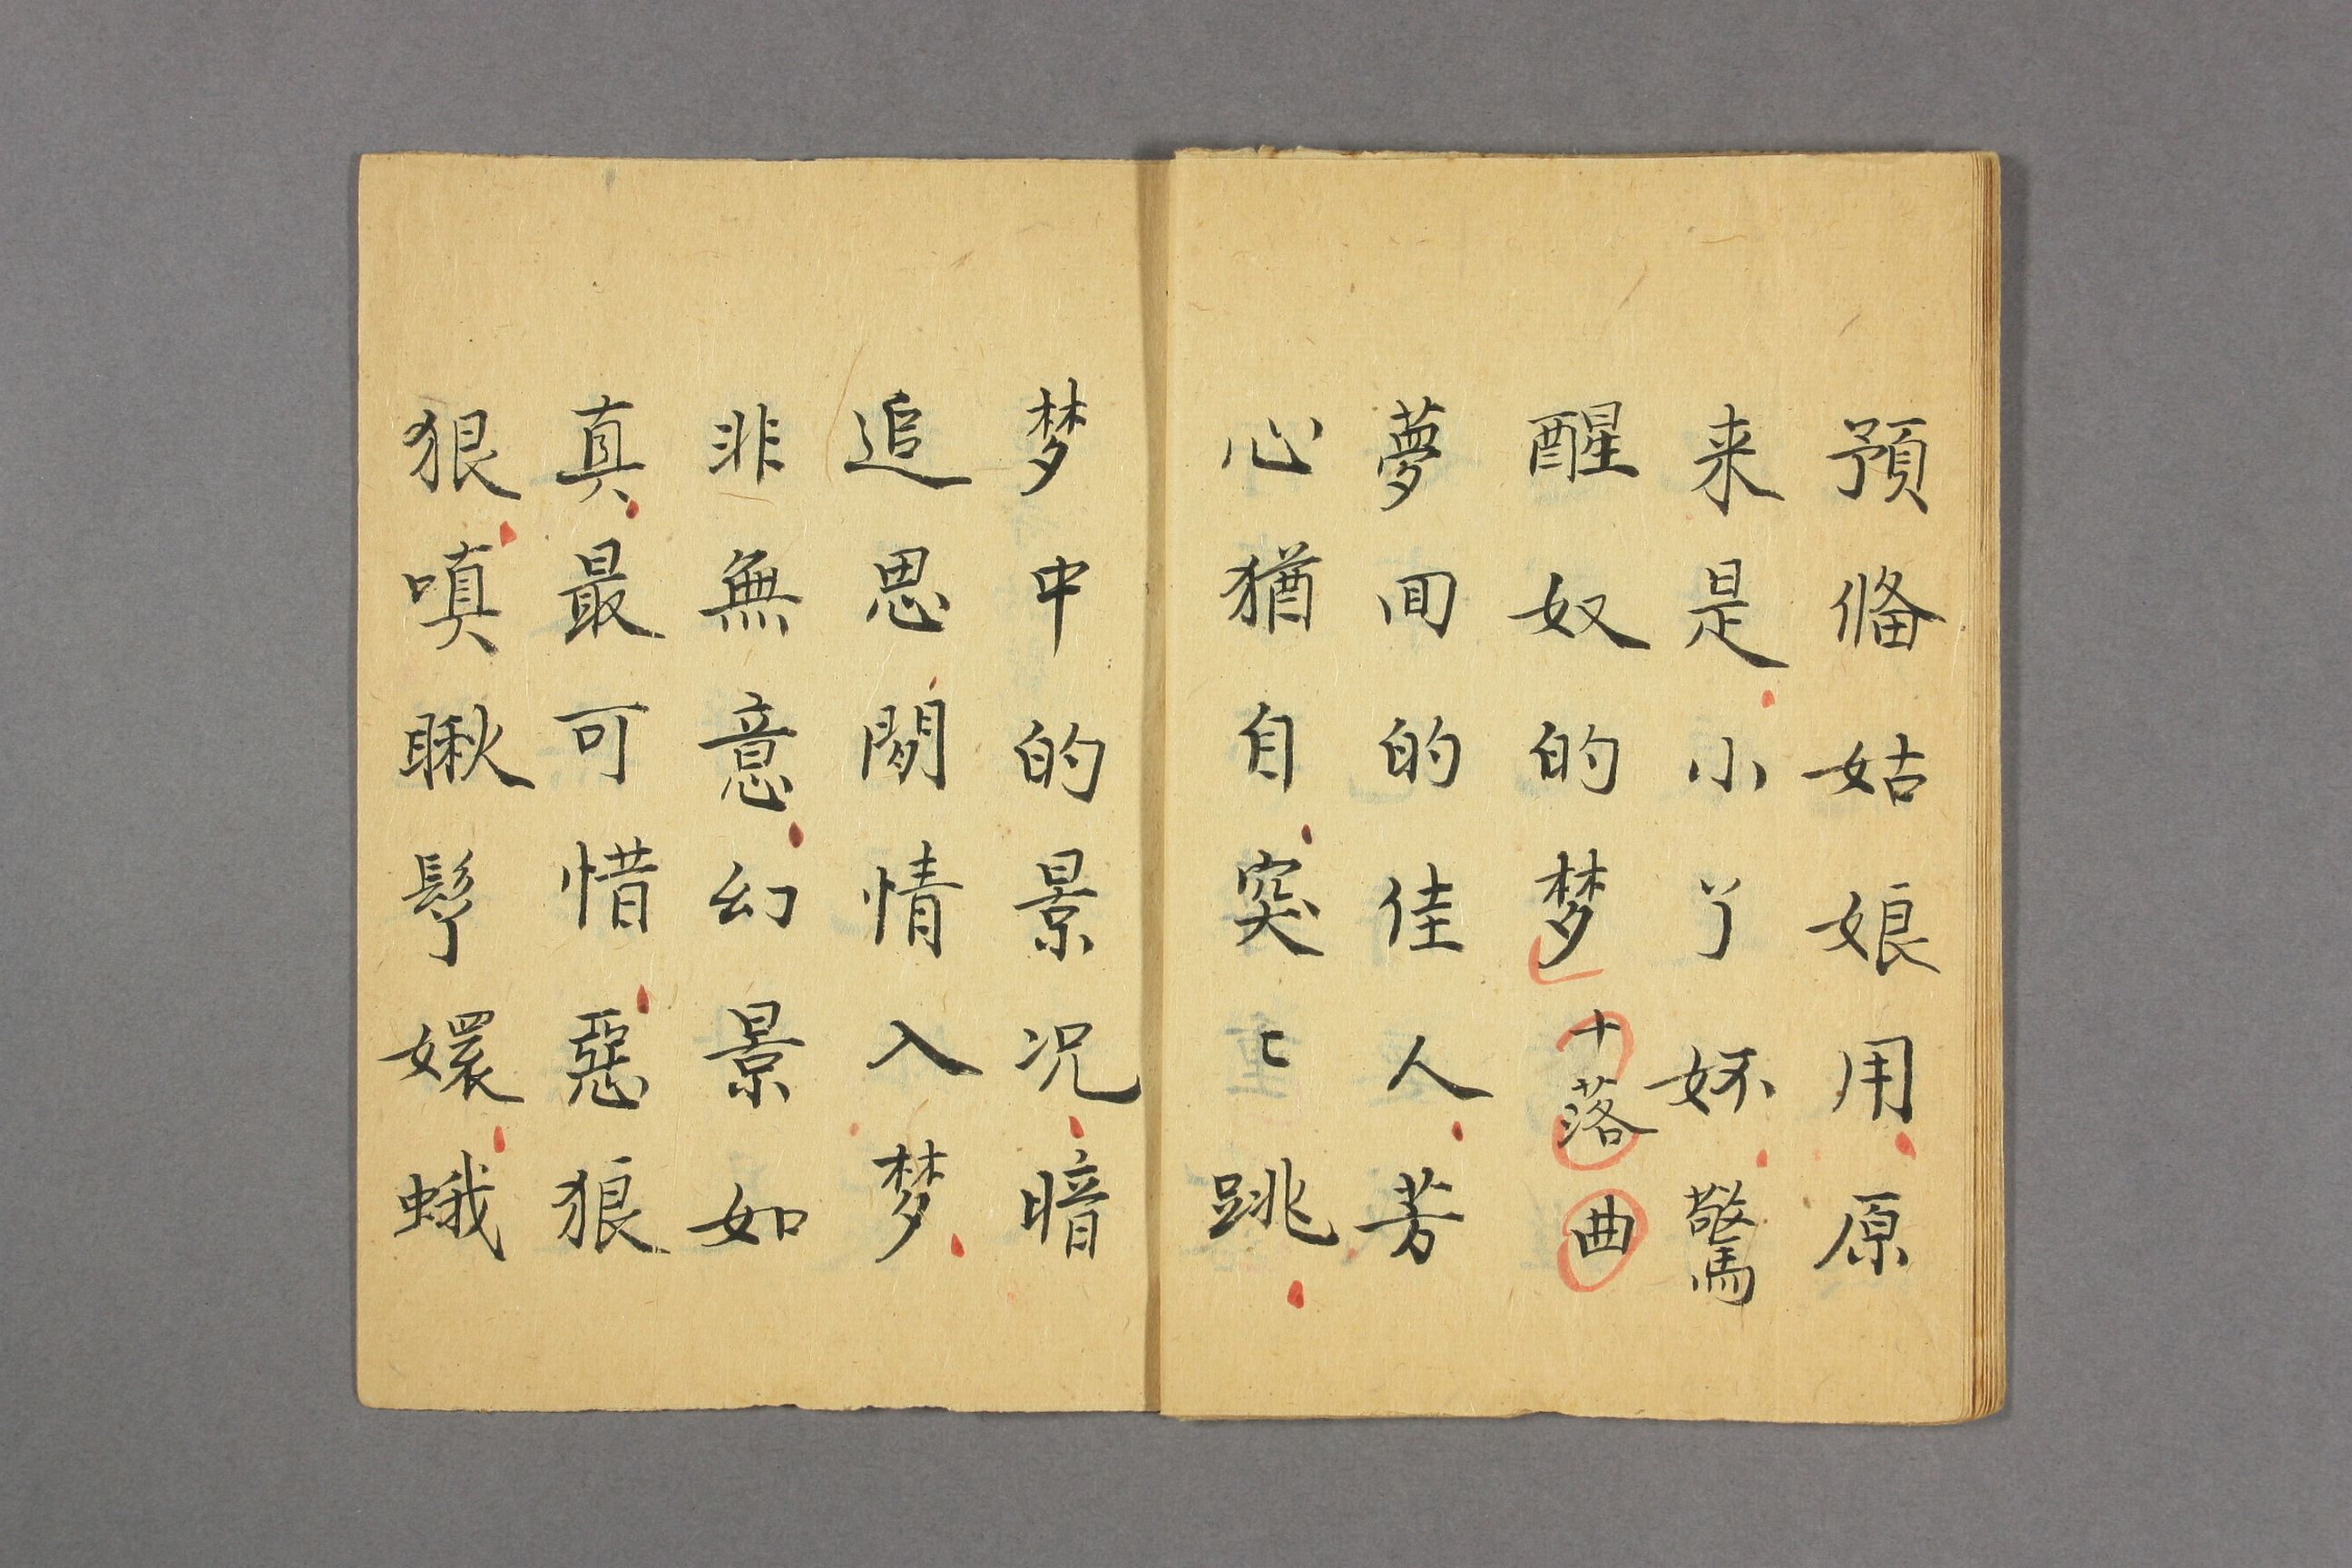 預俻姑娘用原
来是小丫妚驚
醒奴的梦
十落曲
夢囬的佳人芳
心猶自突〻跳
梦中的景况暗
追思閗情入梦
非無意幻景如
真最可惜惡狠
狠嗔瞅髩嬛蛾